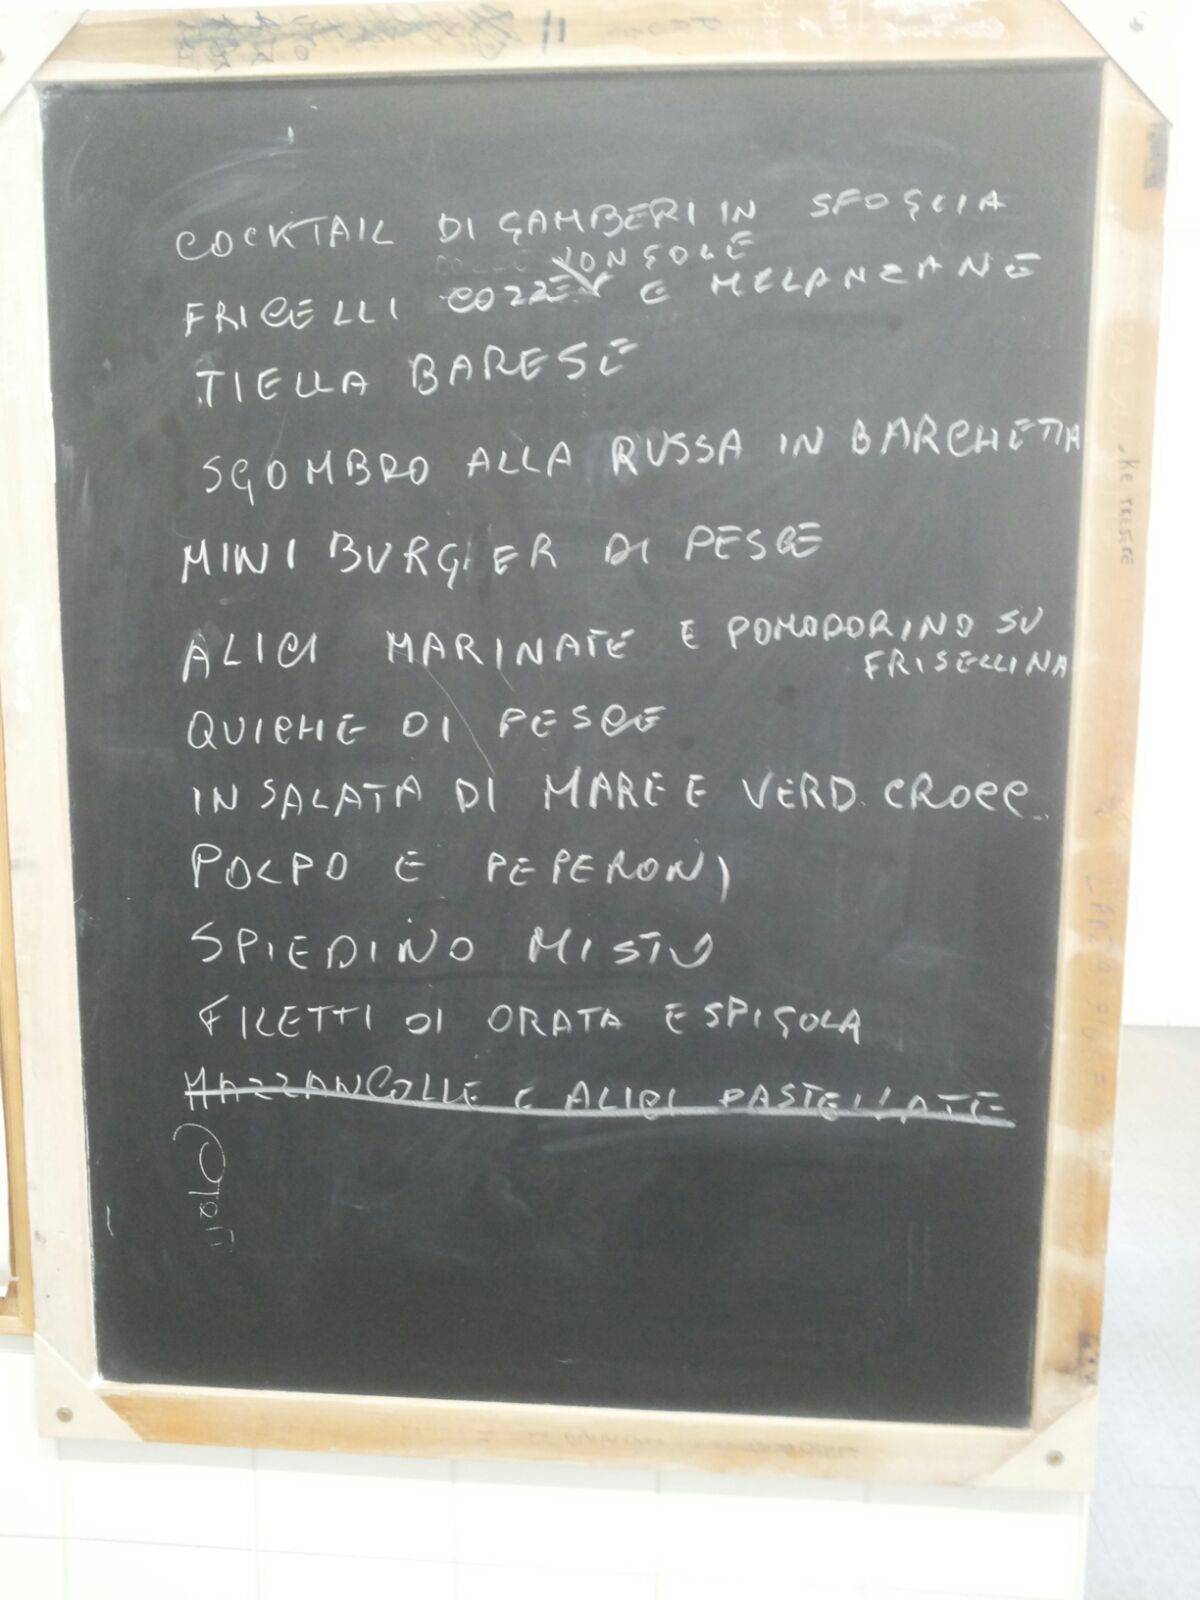 COCKTAIL DI GAMBERI IN SFOGLIA
VONGOLE
FRICELLI COZZE E MELANZANE
TIELLA BARESE
SGOMBRO ALLA RUSSA IN BARCHETTA
MINI BURGHER DI PESCE
ALICI MARINATE E POMODORINO SU
FRISELLINA
QUICHE DI PESCE
INSALATA DI MARE E VERD. CROCC.
POLPO E PEPERONI
SPIEDINO MISTO
FILETTI DI ORATA E SPIGOLA
MAZZANCOLLE E ALICI PASTELLATE